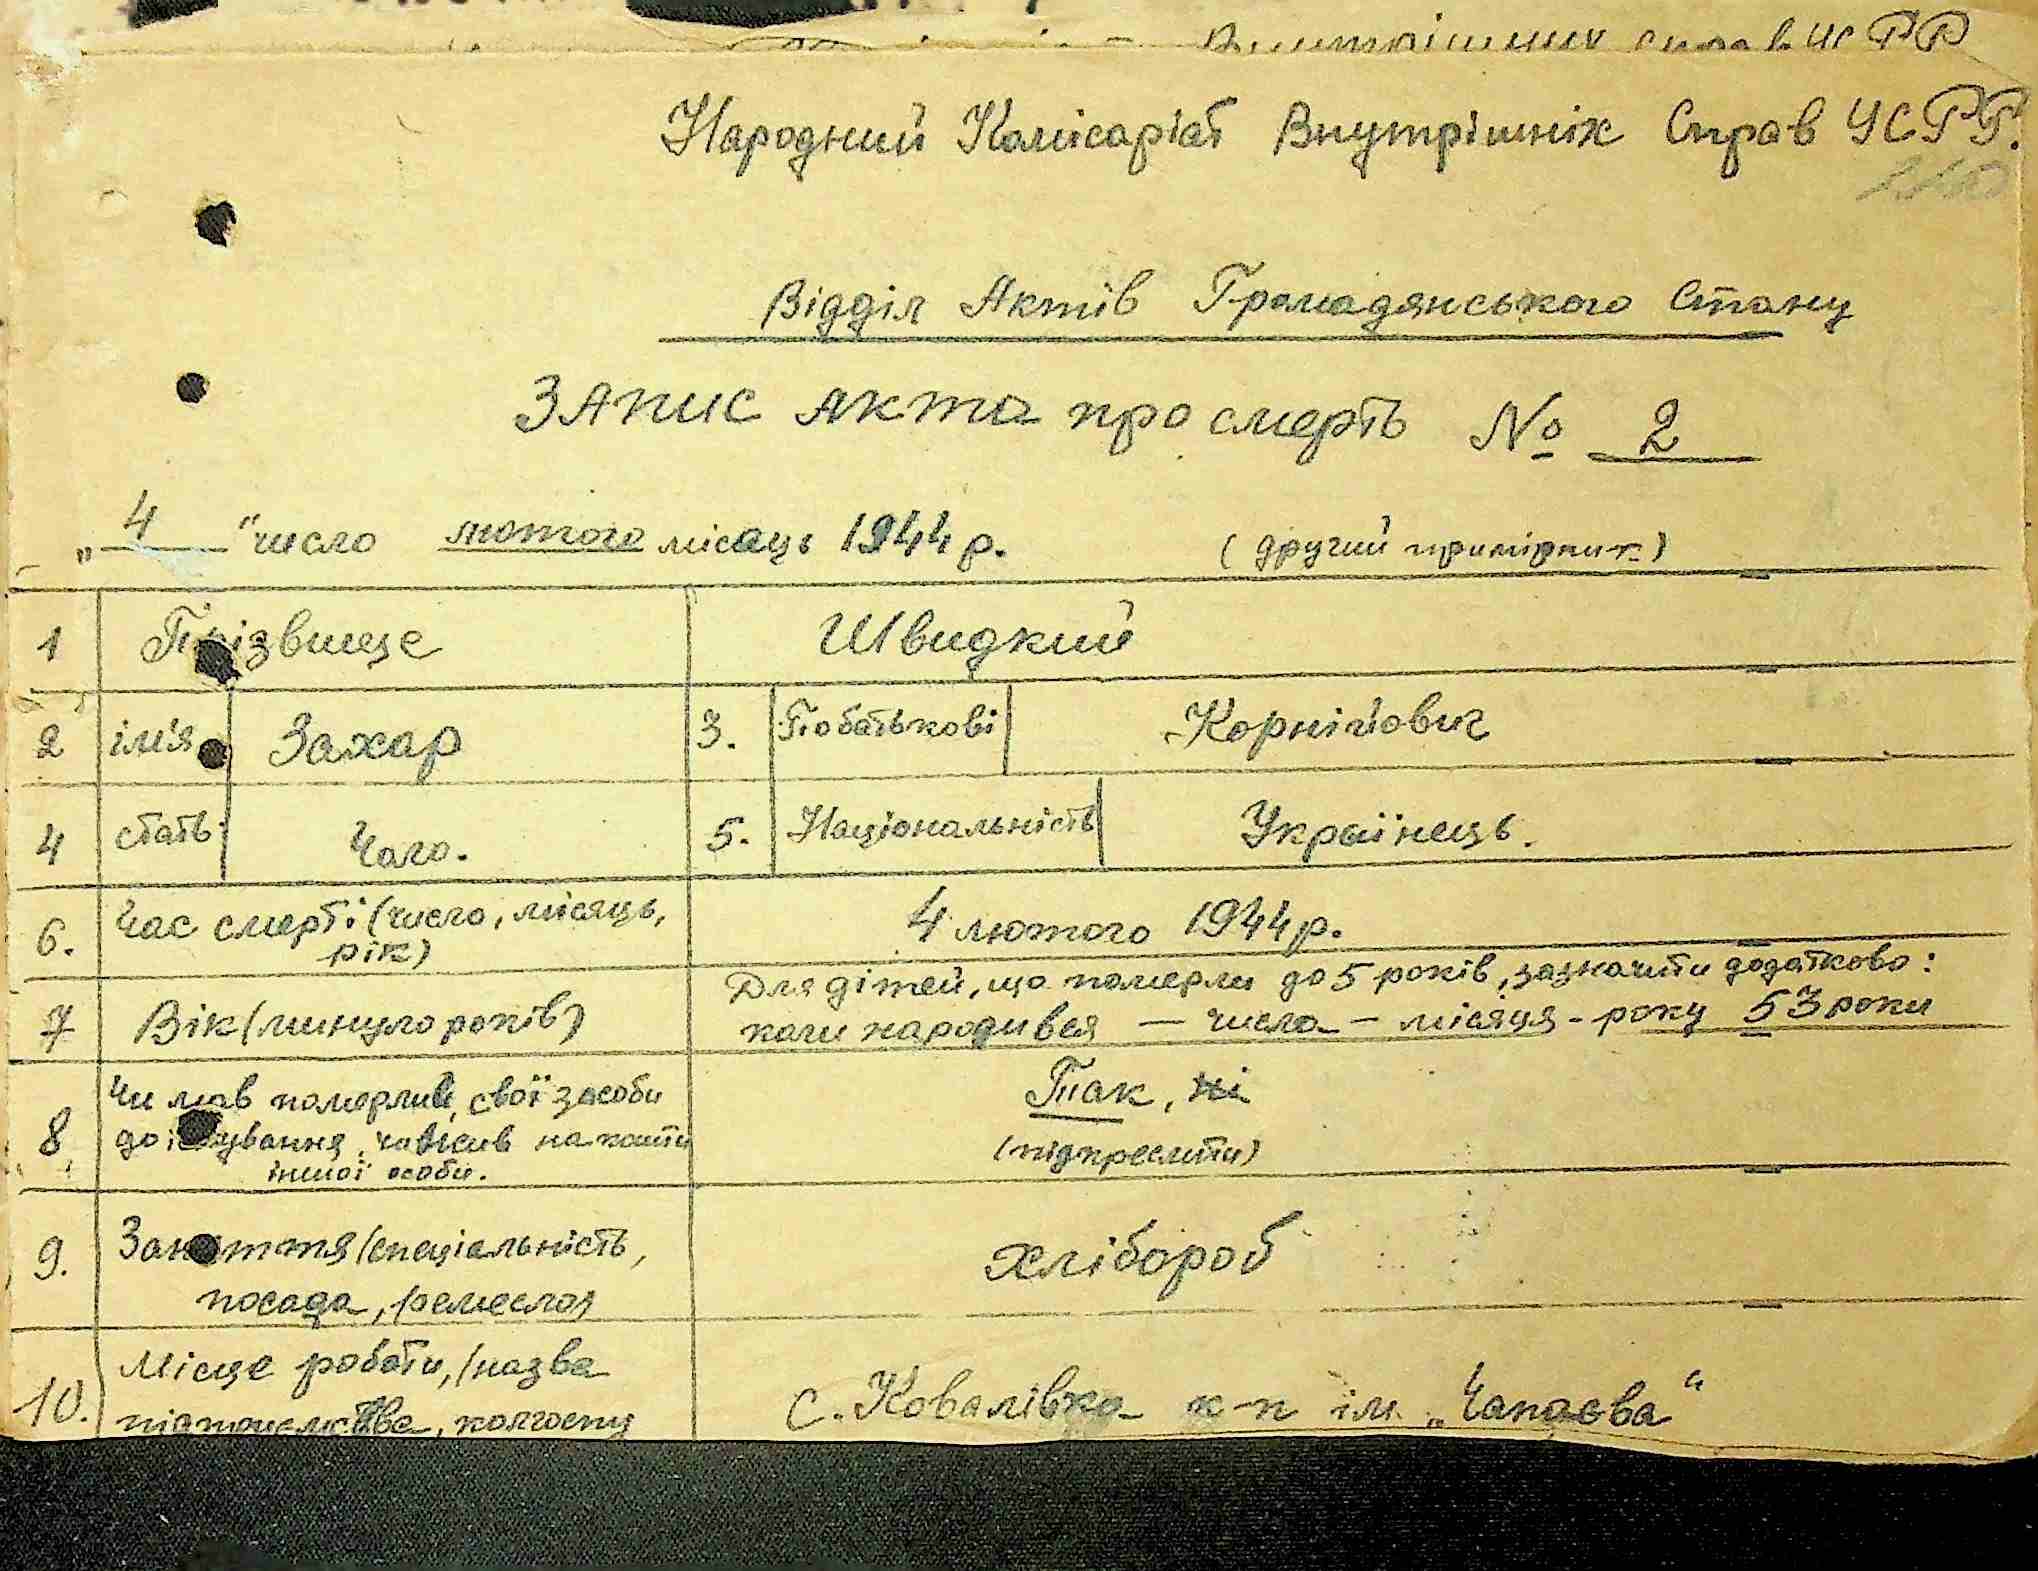 Внутрішних справ УСРР
Народний Комісаріат Внутрішніх Справ УСРР.
Відділ Актів Громадянського Стану
Запис акта про смерть № 2
„4“ число лютого місяць 1944 р. (другий примірник)
1 Прізвище Швидкий
2 ім'я Захар 3. По батькові Корнійович
4 стать Чоло. 5. Національність Українець.
6. Час смерті (число, місяць, рік) 4 лютого 1944 р.
Для дітей, що померли до 5 років, зазначити додатково:
7 Вік (минуло років) коли народився — числа — місяця - року 53 роки
8 Чи мав померлий свої засоби Так, ні
до існування, чи висів на кошти (підкреслити)
іншої особи.
9. Заняття (спеціальність, хлібороб
посада, ремесло)
10. Місце роботи, (назва
підприємства, колгоспу с. Ковалівка к-п ім. „Чапаєва“